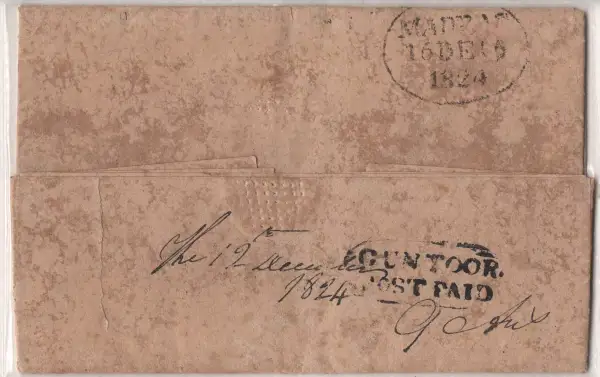 MADRAS
16 DE 16
1824
The 12th December
1824
GUNTOOR.
POST PAID